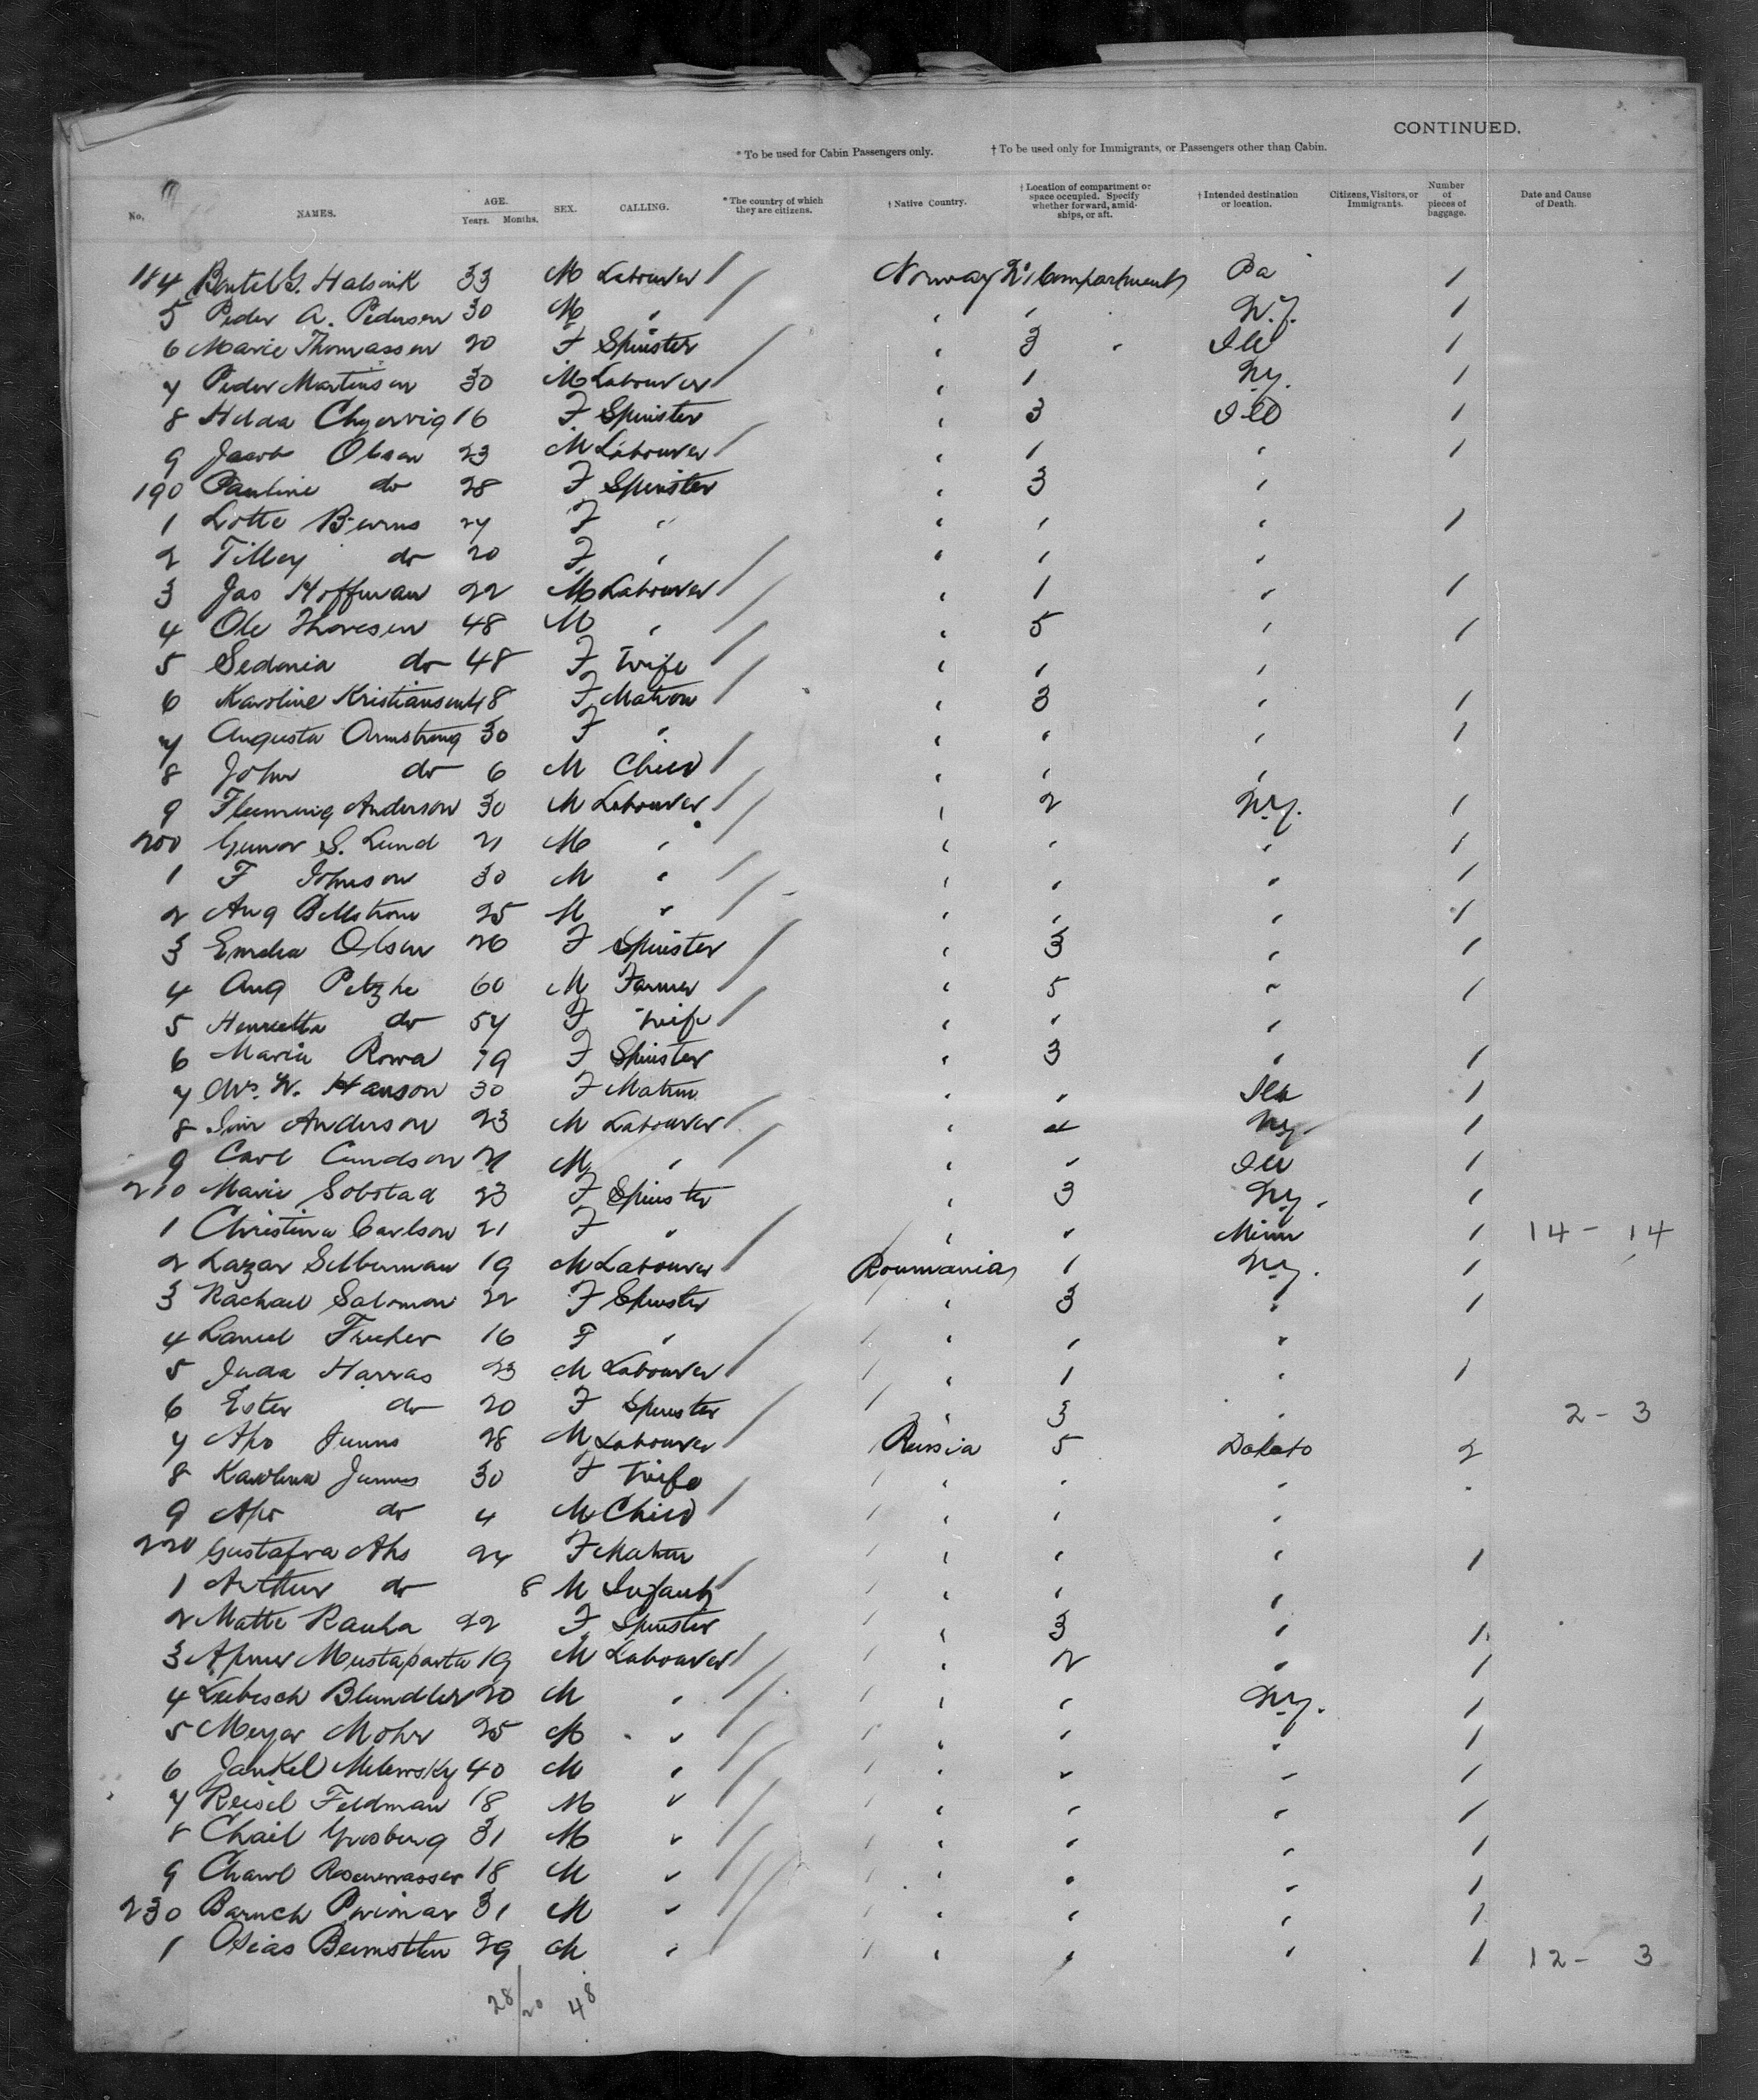 CONTINUED.
* To be used for Cabin Passengers only. † To be used only for Immigrants, or Passengers other than Cabin.
No. NAMES. AGE. Years. Months. SEX. CALLING. * The country of which they are citizens. † Native Country. † Location of compartment or space occupied. Specify whether forward, amidships, or aft. † Intended destination or location. Citizens, Visitors, or Immigrants. Number of pieces of baggage. Date and Cause of Death.
184 G. 33 M Labourer Norway No 1 Compartment Pa 1
5 Peder A. Pedersen 30 M " " " N.Y. 1
6 Marie Thomassen 20 F Spinster " 3 " Ill 1
7 Peder Martinsen 30 M Labourer " 1 N.Y. 1
8 Hilda 16 F Spinster " 3 Ill 1
9 Jacob Olsen 23 M Labourer " 1 " 1
190 Pauline do 28 F Spinster " 3 "
1 Lotte 27 F " " " " 1
2 Tilley do 20 F " " " "
3 Jas Hoffman 22 M Labourer " 1 " 1
4 Ole Thoresen 48 M " " 5 " 1
5 Sedonia do 48 F Wife " " "
6 Karoline Kristiansen 48 F Matron " 3 " 1
7 Augusta Armstrong 30 F " " " " 1
8 John do 6 M Child " " "
9 Flemming Anderson 30 M Labourer " 2 N.Y. 1
200 Gunar S. Lund 21 M " " " " 1
1 F Johnson 30 M " " " " 1
2 Aug 25 M " " " " 1
3 Emelia Olsen 26 F Spinster " 3 " 1
4 Aug 60 M Farmer " 5 " 1
5 Henrietta do 57 F Wife " " "
6 Maria Rowa 19 F Spinster " 3 " 1
7 Mrs. W. Hanson 30 F Matron " " Ill 1
8 Anderson 23 M Labourer " 2 N.Y. 1
9 Carl 21 M " " " Ill 1
210 Marie Sobstad 23 F Spinster " 3 N.Y. 1
1 Christina Carlson 21 F " " " Minn 1 14 - 14
2 Lazar Silberman 19 M Labourer Roumania 1 N.Y. 1
3 Rachael Salomon 22 F Spinster " 3 " 1
4 16 F " " " "
5 Juda Harras 23 M Labourer " 1 " 1
6 Ester do 20 F Spinster " 3 " 2 - 3
7 Apo 28 M Labourer Russia 5 Dakato 2
8 30 F Wife " " " "
9 Apo do 4 M Child " " "
220 Gustafva Aho 24 F Matron " " " 1
1 Arthur do 8 M Infant " " "
2 Matte Rauha 22 F Spinster " 3 " 1
3 19 M Labourer " 2 " 1
4 20 M " " " N.Y. 1
5 Meyer Mohr 25 M " " " " 1
6 Jankel 40 M " " " " 1
7 Reisel Feldman 18 M " " " " 1
8 31 M " " " " 1
9 Rosenwasser 18 M " " " " 1
230 Baruch 31 M " " " " 1
1 Osias 29 M " " " " 1 12 - 3
28/20 48